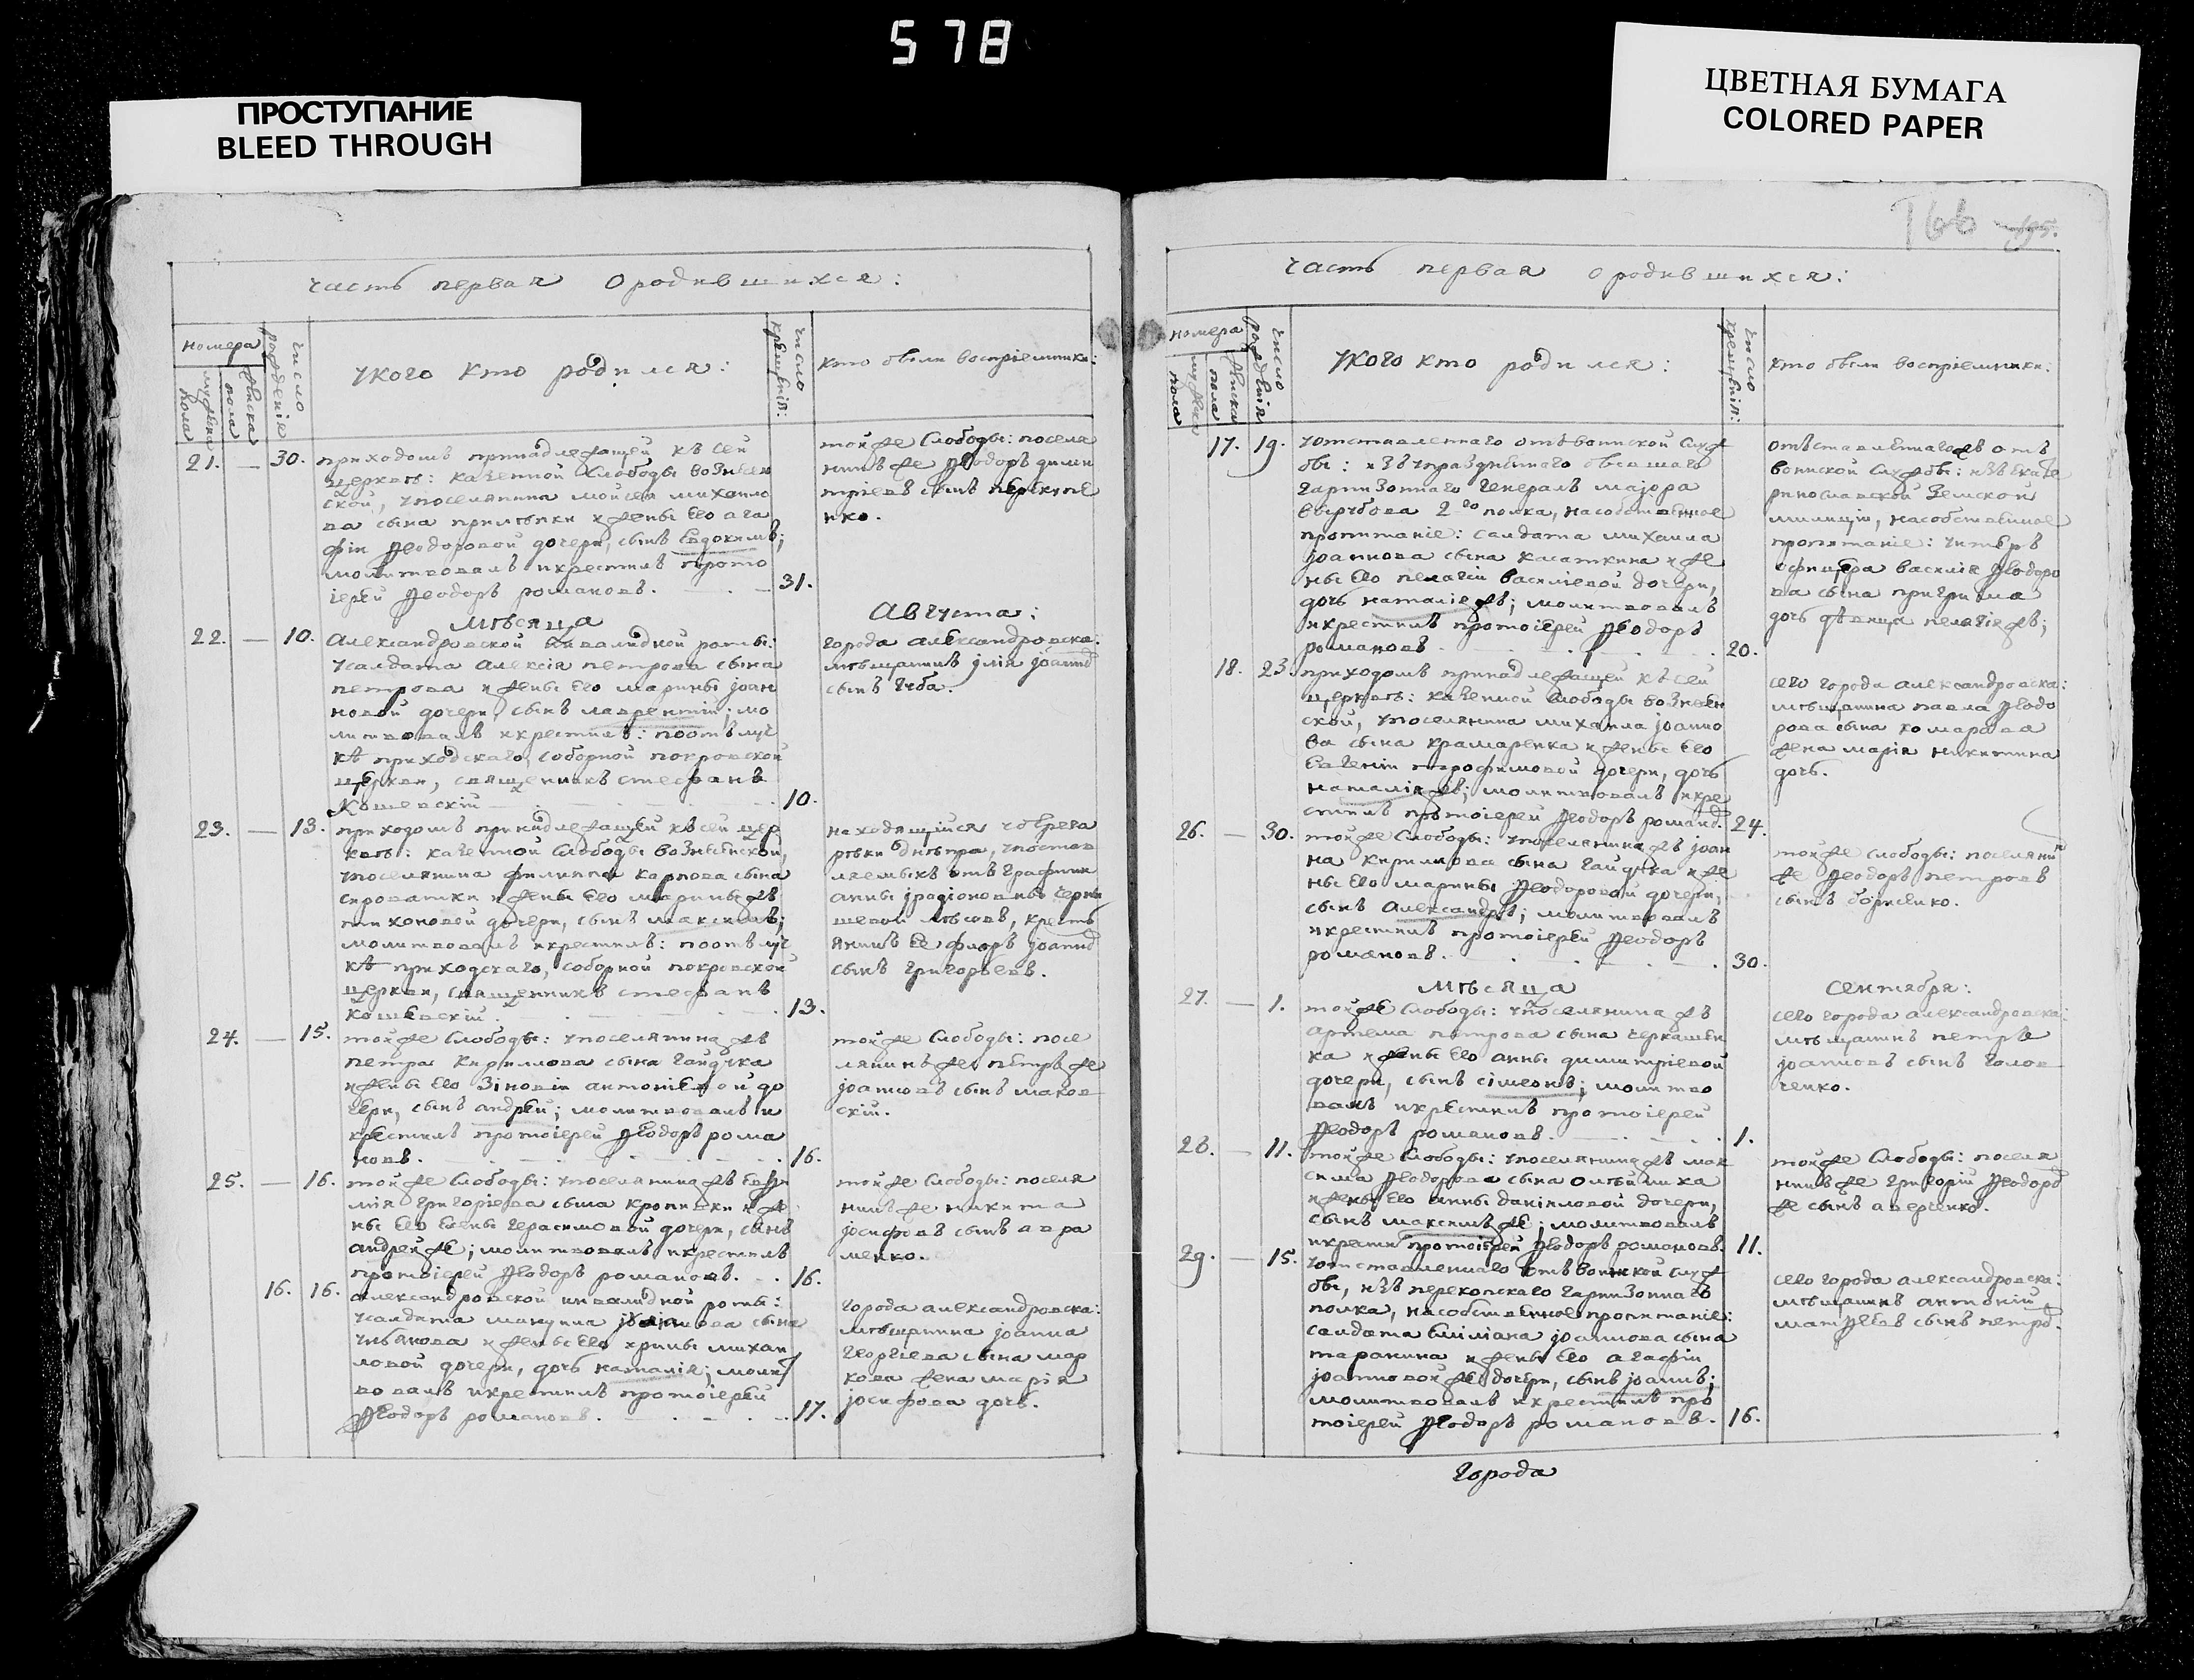 578
ПРОСТУПАНИЕ
BLEED THROUGH
ЦВЕТНАЯ БУМАГА
COLORED PAPER
часть первая о родившихся:
номера
мужеска пола
женска пола
число рождения
у кого кто родился:
число крещения:
кто были восприемники:
21. — 30.
приходомъ принадлежащей къ сей
церквѣ: казенной слободы вознесен
ской, упоселянина мойсея михайло
ва сына
и жены его ага
фіи Ѳеодоровой дочери, сынъ Евдокимъ;
молитвовалъ икрестилъ прото
іерей Ѳеодоръ романовъ. 31.
той же слободы: поселя
нинъ же Ѳеодоръ дими
тріевъ сынъ
нко.
мѣсяца Августа:
22. — 10.
Александровской инвалидной роты:
усалдата алексія петрова сына
петрова и жены его марины іоан
новой дочери, сынъ лаврентій; мо
литвовалъ икрестилъ: поотлуч
кѣ приходскаго, соборной покровской
церкви, священникъ стефанъ
Кошевскій 10.
города александровска:
мѣщанинъ ілія іоаннов
сынъ губа.
23. — 13.
приходомъ принадлежащей къ сей цер
квѣ: казенной слободы вознесенской,
упоселянина филиппа карпова сына
сироватки и жены его марины жъ
тихоновой дочери, сынъ максимъ;
молитвовалъ икрестилъ: поотлуч
кѣ приходскаго, соборной покровской
церкви, священникъ стефанъ
кошевскій. 13.
находящійся уберега
рѣки днѣпра, упостав
ляемыхъ отъ графини
анны іродіоновны черны
шевой лѣсовъ, кресть
янинъ ее флоръ іоаннов
сынъ григорьевъ.
24. — 15.
той же слободы: упоселянина жъ
петра кирилова сына гайдука
и жены его зіновіи антоніевой до
чери, сынъ андрей; молитвовалъ и
крестилъ протоіерей Ѳеодоръ рома
новъ. 16.
той же слободы: посе
лянинъ же петръ же
іоанновъ сынъ маков
скій.
25. — 16.
той же слободы: упоселянина жъ
мія григоріева сына кропивки и же
ны его елены герасимовой дочери, сынъ
андрей же; молитвовалъ икрестилъ
протоіерей Ѳеодоръ романовъ. 16.
той же слободы: поселя
нинъ же никита
іосифовъ сынъ авра
менко.
16. 16.
александровской инвалидной роты:
усалдата іоаннова сына
и жены его ирины михаи
ловой дочери, дочь наталія; молит
вовалъ икрестилъ протоіерей
Ѳеодоръ романовъ. 17.
города александровска:
мѣщанина іоанна
георгіева сына мар
кова жена марія
іосифова дочь.
166 195.
часть первая о родившихся:
номера
мужеска пола
женска пола
число рожденія
у кого кто родился:
число крещенія:
кто были восприемники:
17. 19.
уотставленнаго отъ воинской служ
бы: изъ упраздненнаго бывшаго
гарнизоннаго генералъ маіора
вырубова 2го полка, насобственное
пропитаніе: салдата михаила
іоаннова сына касаткина и же
ны его пелагіи василіевой дочери,
дочь наталія жъ; молитвовалъ
икрестилъ протоіерей Ѳеодоръ
романовъ. 20.
отъставленнаго жъ отъ
воинской службы: изъ екате
ринославской земской
милиціи, насобственное
пропитаніе: унтеръ
офицера василія Ѳеодоро
ва сына
дочь дѣвица пелагіе жъ;
18. 23.
приходомъ принадлежащей къ сей
церквѣ: казенной слободы вознесен
ской, упоселянина михаила іоанно
ва сына крамаренка и жены его
евгеніи трофимовой дочери, дочь
наталія жъ; молитвовалъ икре
стилъ протоіерей Ѳеодоръ романов. 24.
сего города александровска:
мѣщанина павла Ѳеодо
рова сына комарова
жена марія никитина
дочь.
26. — 30.
той же слободы: упоселянина жъ іоан
на кирилова сына гайдука и же
ны его марины Ѳеодоровой дочери,
сынъ александръ; молитвовалъ
икрестилъ протоіерей Ѳеодоръ
романовъ. 30.
той же слободы: поселянин
же Ѳеодоръ петровъ
сынъ борисенко.
мѣсяца сентября:
27. — 1.
той же слободы: упоселянина жъ
артема петрова сына черкашен
ка и жены его анны димитріевой
дочери, сынъ сімеонъ; молитво
валъ икрестилъ протоіерей
Ѳеодоръ романовъ. 1.
сего города александровска:
мѣщанинъ петръ
іоанновъ сынъ голов
ченко.
28. — 11.
той же слободы: упоселянина жъ мак
сима Ѳеодорова сына олейника
и жены его анны даніиловой дочери,
сынъ максимъ же; молитвовалъ
икрести протоіерей Ѳеодоръ романовъ. 11.
той же слободы: поселя
нинъ же григорій Ѳеодоров
же сынъ аверченко.
29. — 15.
уотставленнаго отъ воинской служ
бы, изъ перекопскаго гарнизоннаго
полка, насобственное пропитаніе:
салдата еміліана іоаннова сына
таранина и жены его агафіи
іоанновой же дочери, сынъ іоаннъ;
молитвовалъ икрестилъ про
тоіерей Ѳеодоръ романовъ. 16.
сего города александровска:
мѣщанинъ антоній
матѳеевъ сынъ петров.
города